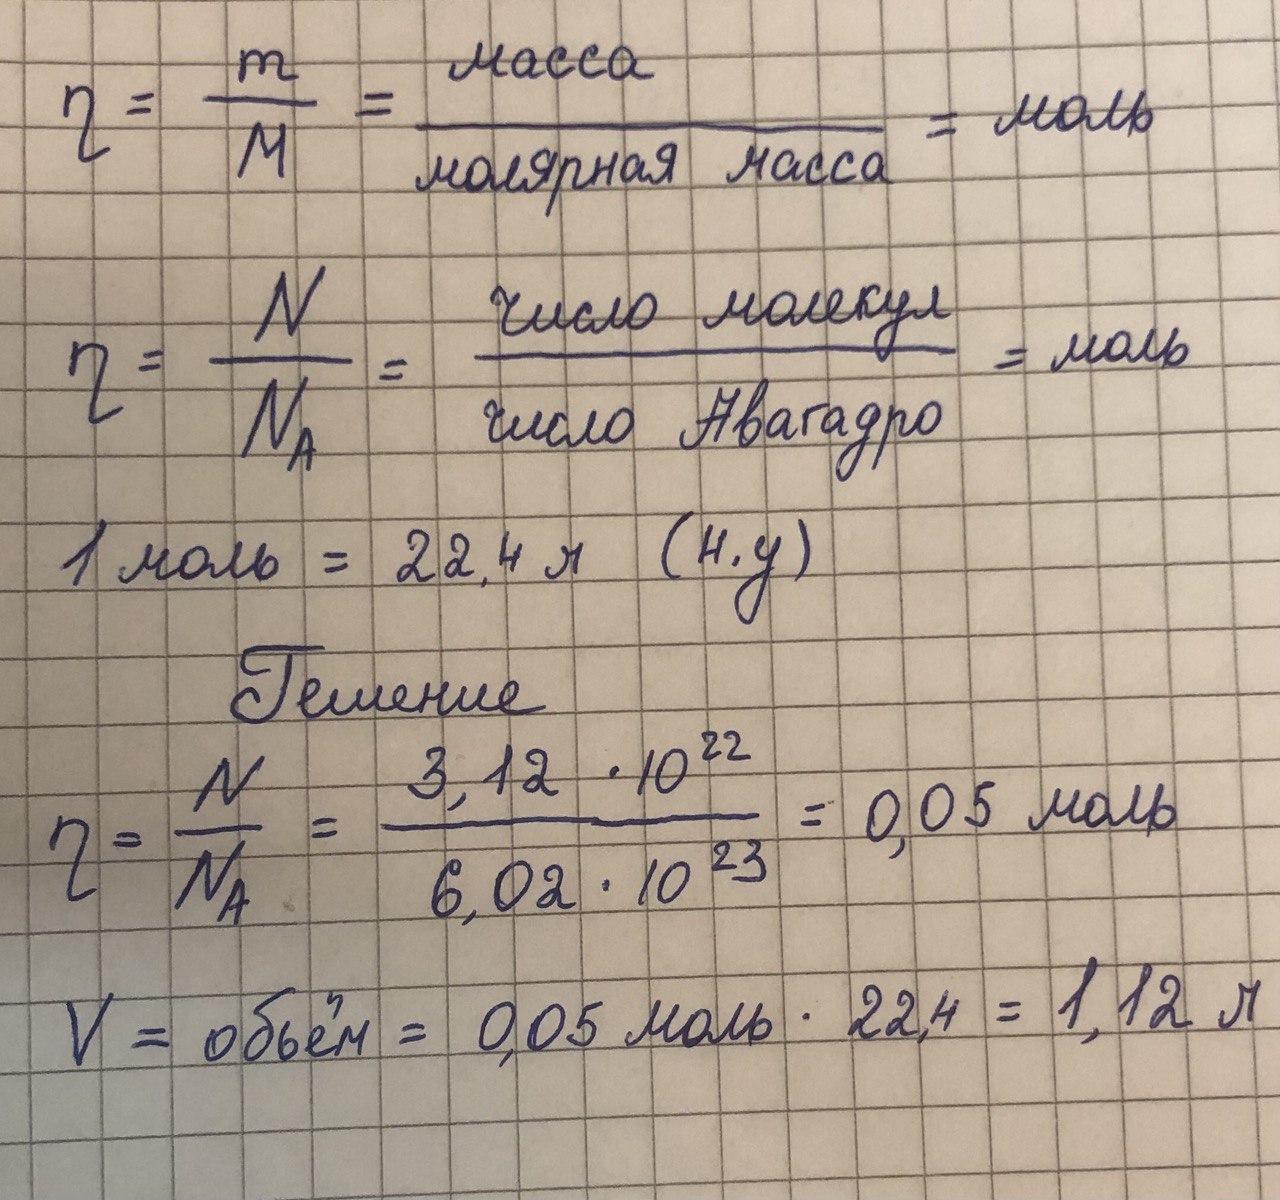 η = m/M = масса/молярная масса = моль
η = N/N_A = число молекул/число Авагадро = моль
1 моль = 22,4 л (н.у)
Решение
η = N/N_A = 3,12 · 10²²/6,02 · 10²³ = 0,05 моль
V = обьём = 0,05 моль · 22,4 = 1,12 л